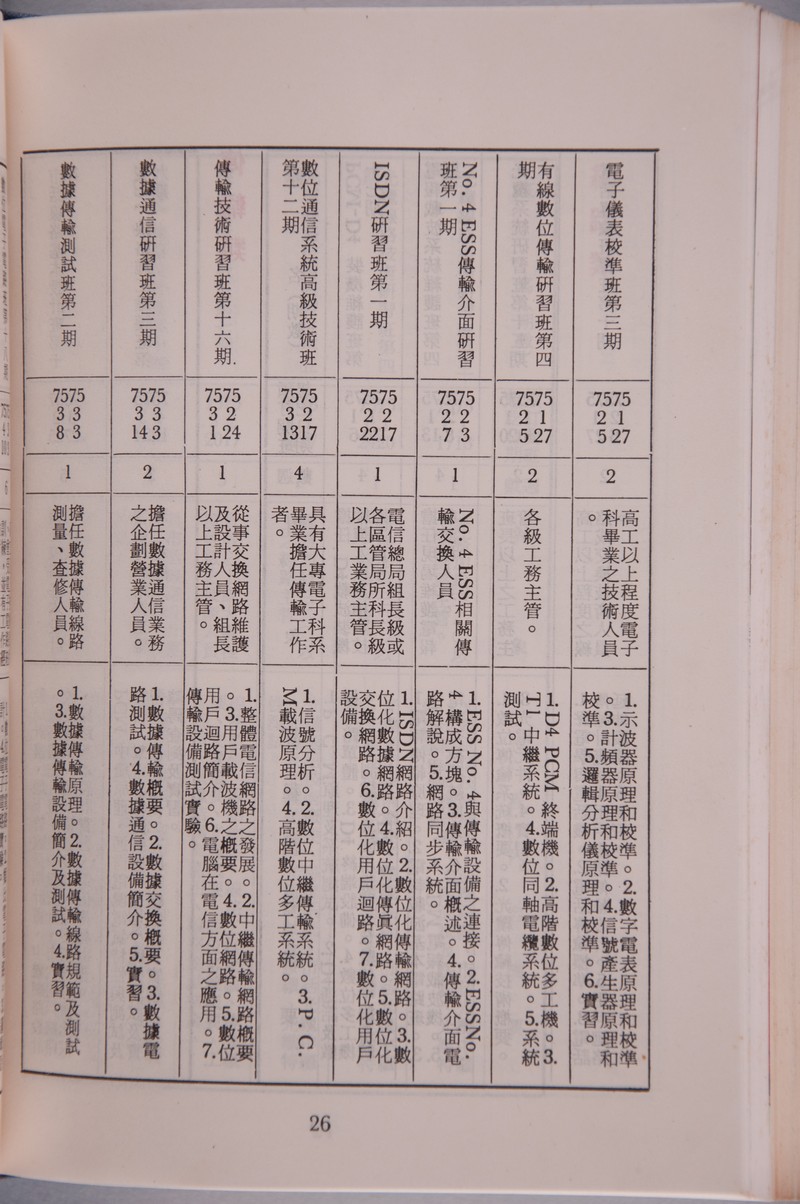 電子儀表校準班第三期
7575
2 1
5 27
2
高工以上程度電子
科畢業之技術人員
。
1.示波器原理和校準。2.數字電表原理和校準
。3.計頻器原理和校準。4.信號產生器原理和
校準。5.邏輯分析儀原理和校準。6.實習。
有線數位傳輸研習班第四
期
7575
2 1
5 27
2
各級工務主管。
1.D4 PCM 終端機。2.高階數位多工機。3.
T1中繼系統。4.數位同軸電纜系統。5.系統
測試。
No. 4 ESS傳輸介面研習
班第一期
7575
2 2
7 3
1
No. 4 ESS相關傳
輸交換人員
1.ESS No. 4與傳輸設備之連接。2.ESS No.
4構成方塊。3.傳輸介面概述。4.傳輸介面電
路解說。5.網路同步系統。
ISDN研習班第一期
7575
2 2
2217
1
電信總局組長級或
各區管局所科長級
以上工業務主管。
1.ISDN網路介紹。2.數位化傳輸網路。3.數
位化數據網路。4.數位化眞網路。5.數位化
交換網路。6.數位化用戶迴路。7.數位化用戶
設備。
數位通信系統高級技術班
第十二期
7575
3 2
1317
4
具有大專電子科系
畢業擔任傳輸工作
者。
1.信號分析。2.數位中繼傳輸系統。3.P.C.
M載波原理。4.高階數位多工系統。
傳輸技術研習班第十六期.
7575
3 2
1 24
1
從事交換網路維護
及設計人員、組長
以上工務主管。
1.整體電信網路之發展。2.中繼傳輸網路概要
。3.用戶載波機之概要。4.數位網路。5.數位
用戶迴路簡介。6.電腦在電信方面之應用。7.
傳輸設備測試實驗。
數據通信研習班第三期
7575
3 3
14 3
2
擔任數據通信業務
之企劃營業人員。
1.數據傳輸概要。2.數據交換概要。3.數據電
路測試。4.數據通信設備簡介。5.實習。
數據傳輸測試班第二期
7575
3 3
8 3
1
擔任數據傳輸線路
測量、查修人員。
1.數據傳輸原理。2.數據傳輸線路規範及測試
。3.數據傳輸設備。簡介及測試。4.實習。
26